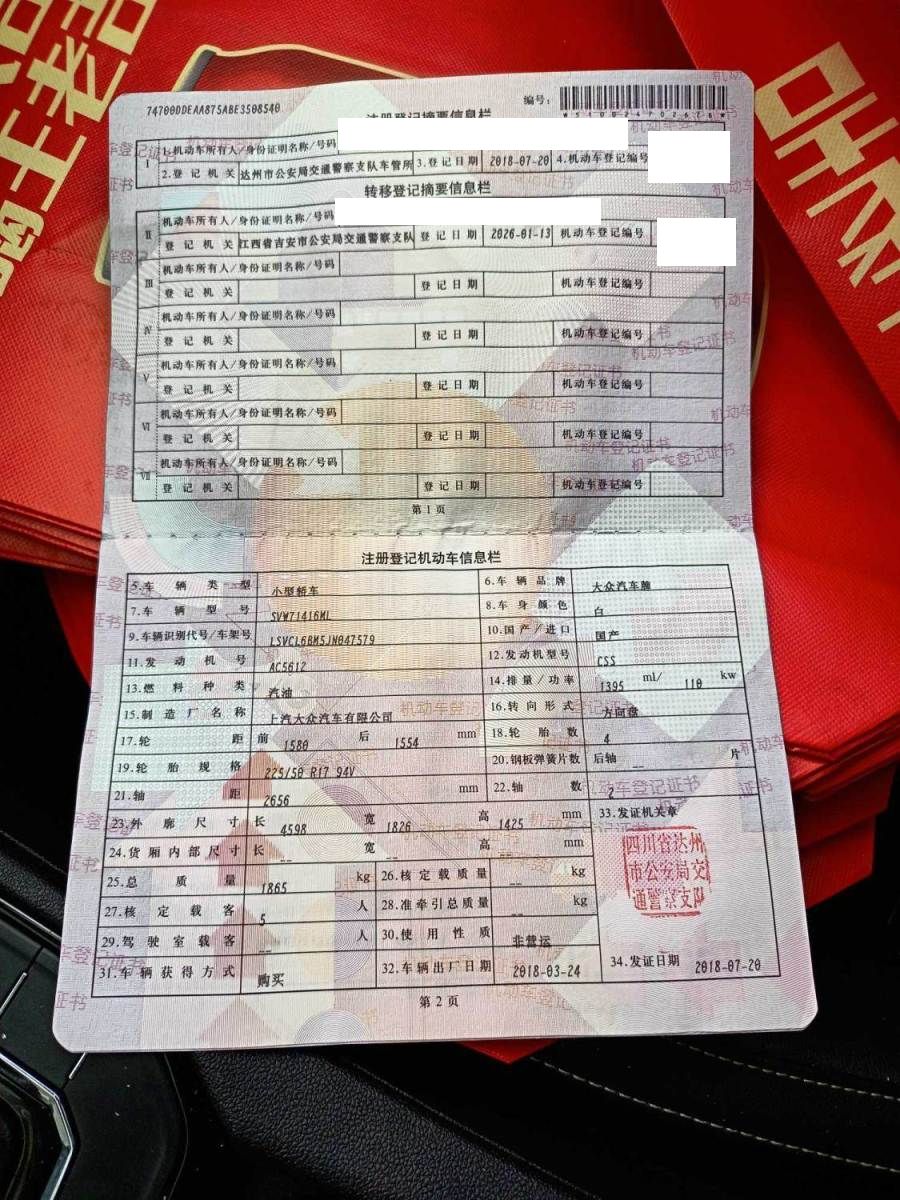 74700DDEAA875ABE3508540
编号:
注册登记摘要信息栏
I
1.机动车所有人/身份证明名称/号码
2.登记机关 达州市公安局交通警察支队车管所 3.登记日期 2018-07-20 4.机动车登记编号
转移登记摘要信息栏
II
机动车所有人/身份证明名称/号码
登记机关 江西省吉安市公安局交通警察支队 登记日期 2026-01-13 机动车登记编号
III
机动车所有人/身份证明名称/号码
登记机关 登记日期 机动车登记编号
IV
机动车所有人/身份证明名称/号码
登记机关 登记日期 机动车登记编号
V
机动车所有人/身份证明名称/号码
登记机关 登记日期 机动车登记编号
VI
机动车所有人/身份证明名称/号码
登记机关 登记日期 机动车登记编号
VII
机动车所有人/身份证明名称/号码
登记机关 登记日期 机动车登记编号
第1页
注册登记机动车信息栏
5.车辆类型 小型轿车 6.车辆品牌 大众汽车牌
7.车辆型号 SVW71416ML 8.车身颜色 白
9.车辆识别代号/车架号 LSVCL6BM5JN047579 10.国产/进口 国产
11.发动机号 AC5612 12.发动机型号 CSS
13.燃料种类 汽油 14.排量/功率 1395 ml/ 110 kw
15.制造厂名称 上汽大众汽车有限公司 16.转向形式 方向盘
17.轮距 前 1580 后 1554 mm 18.轮胎数 4
19.轮胎规格 225/50 R17 94V 20.钢板弹簧片数 后轴 -- 片
21.轴距 2656 mm 22.轴数 2
23.外廓尺寸 长 4598 宽 1826 高 1425 mm 33.发证机关章
24.货厢内部尺寸 长 -- 宽 -- 高 -- mm
25.总质量 1865 kg 26.核定载质量 -- kg
27.核定载客 5 人 28.准牵引总质量 -- kg
29.驾驶室载客 -- 人 30.使用性质 非营运
31.车辆获得方式 购买 32.车辆出厂日期 2018-03-24 34.发证日期 2018-07-20
四川省达州
市公安局交
通警察支队
第2页